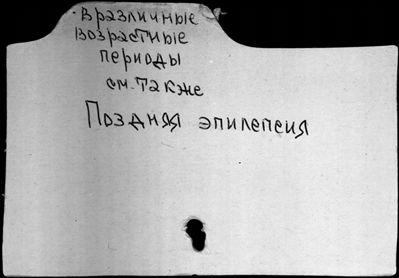 В различные
возрастные
периоды
см. также
Поздняя эпилепсия